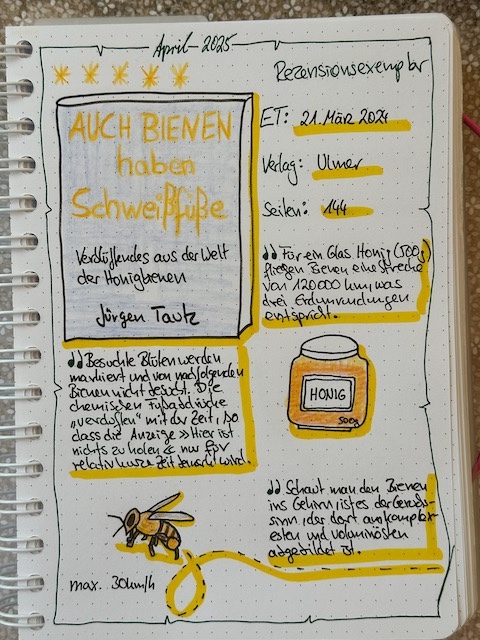 April - 2025
Rezensionsexemplar
AUCH BIENEN
haben
Schweißfüße
Verblüffendes aus der Welt
der Honigbienen
Jürgen Tautz
ET: 21. März 2024
Verlag: Ulmer
Seiten: 144
Für ein Glas Honig (500g)
fliegen Bienen eine Strecke
von 120000 km, was
drei Erdumrundungen
entspricht.
Besuchte Blüten werden
markiert und von nachfolgenden
Bienen nicht besucht. Die
chemischen Fußabdrücke
"verduften" mit der Zeit, so
dass die Anzeige »Hier ist
nichts zu holen« nur für
relativ kurze Zeit
HONIG
500g
Schaut man den Bienen
ins Gehirn, ist es der Geruchs-
sinn, der dort am komplex-
esten und voluminösten
abgebildet ist.
max. 30km/h